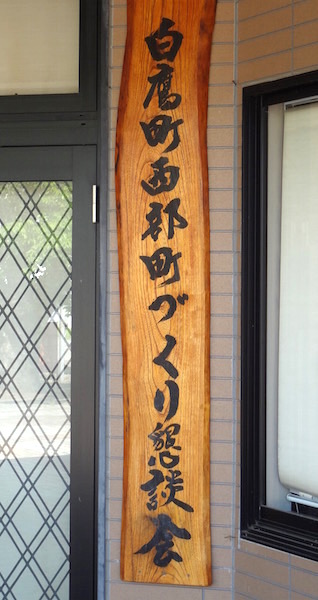 白鷹町西部町づくり懇談会